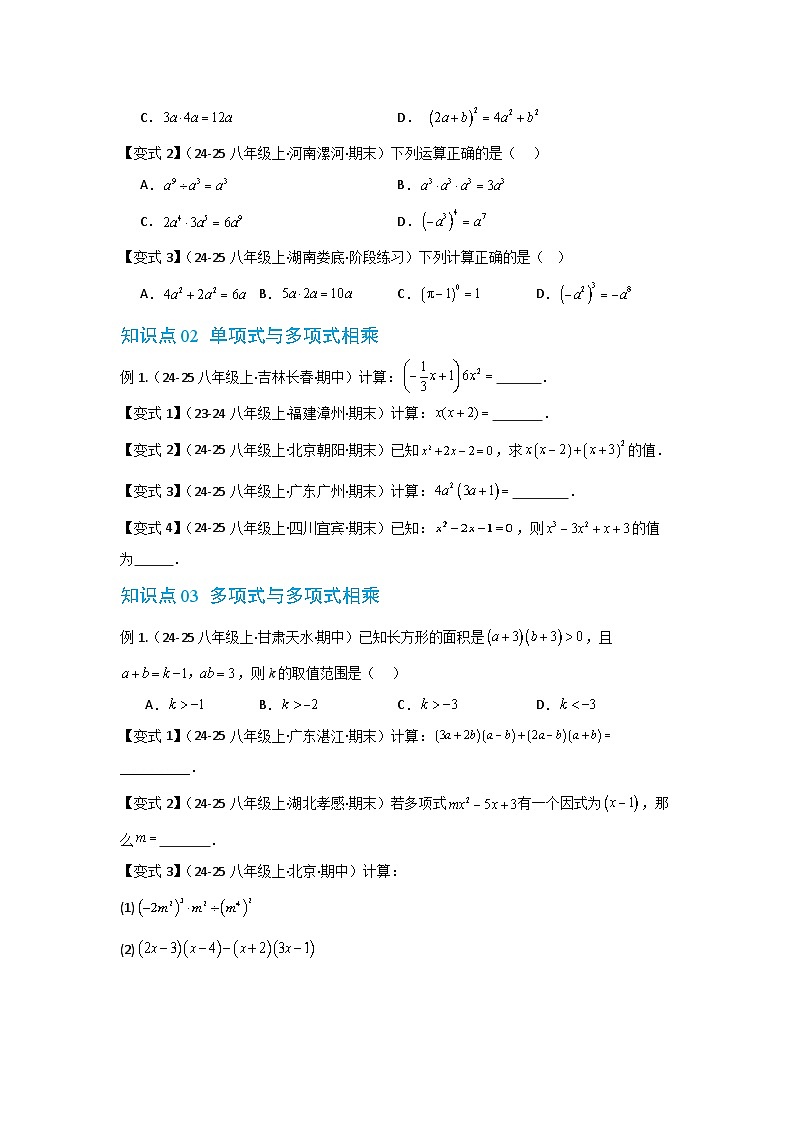 C. 3a·4a=12a D. (2a+b)²=4a²+b²
【变式 2】（24-25 八年级上·河南漯河·期末）下列运算正确的是（ ）
A. a⁹÷a³=a³ B. a³·a³·a³=3a³
C. 2a⁴·3a⁵=6a⁹ D. (−a³)⁴=a⁷
【变式 3】（24-25 八年级上·湖南娄底·阶段练习）下列计算正确的是（ ）
A. 4a²+2a²=6a B. 5a·2a=10a C. (π−1)⁰=1 D. (−a²)³=−a⁸
知识点 02 单项式与多项式相乘
例 1.（24-25 八年级上·吉林长春·期中）计算：(−1/3x+1)6x²=______.
【变式 1】（23-24 八年级上·福建漳州·期末）计算：x(x+2)=______.
【变式 2】（24-25 八年级上·北京朝阳·期末）已知x²+2x−2=0，求x(x−2)+(x+3)²的值.
【变式 3】（24-25 八年级上·广东广州·期末）计算：4a²(3a+1)=_______.
【变式 4】（24-25 八年级上·四川宜宾·期末）已知：x²−2x−1=0，则x³−3x²+x+3的值
为_____.
知识点 03 多项式与多项式相乘
例 1.（24-25 八年级上·甘肃天水·期中）已知长方形的面积是(a+3)(b+3)>0，且
a+b=k−1，ab=3，则k的取值范围是（ ）
A. k>−1 B. k>−2 C. k>−3 D. k<−3
【变式 1】（24-25 八年级上·广东湛江·期末）计算：(3a+2b)(a−b)+(2a−b)(a+b)=
_________.
【变式 2】（24-25 八年级上·湖北孝感·期末）若多项式mx²−5x+3有一个因式为(x−1)，那
么m=______.
【变式 3】（24-25 八年级上·北京·期中）计算：
(1)(−2m²)³·m²÷(m⁴)²
(2)(2x−3)(x−4)−(x+2)(3x−1)